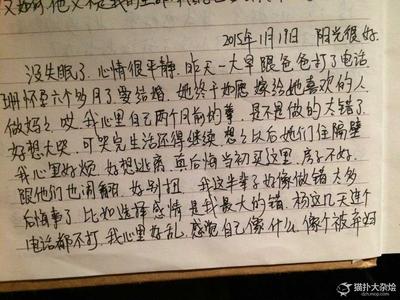 2015年1月17日 阳光很好.
没失眠了.心情很平静.昨天一大早跟爸爸打了电话
怀孕六个多月了.要结婚.她终于如愿嫁给她喜欢的人
做妈了.哎.我心里自己两个月前的事.是不是做的太错了.
好想大哭,可哭完生活还得继续.想想以后她们住隔壁
我心里好烦.好想逃离.真后悔当初买这里.房子不好.
跟他们也闹翻.好别扭.我这半辈子好像做错太多
后悔事了.比如选择感情是我最大的错.杨这几天连个
电话都不打.我心里好乱.感觉自己像什么.像个被弃妇
猫扑大杂烩
dzh.mop.com